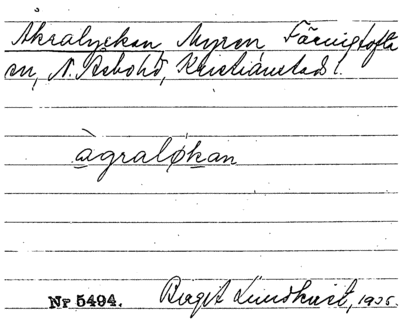 Åkralyckan, Myren, Färingtofta
sn, N. Åsbo hd, Kristianstads l.
àgraløkan
Nr 5494. Birgit Lundkvist, 1935.